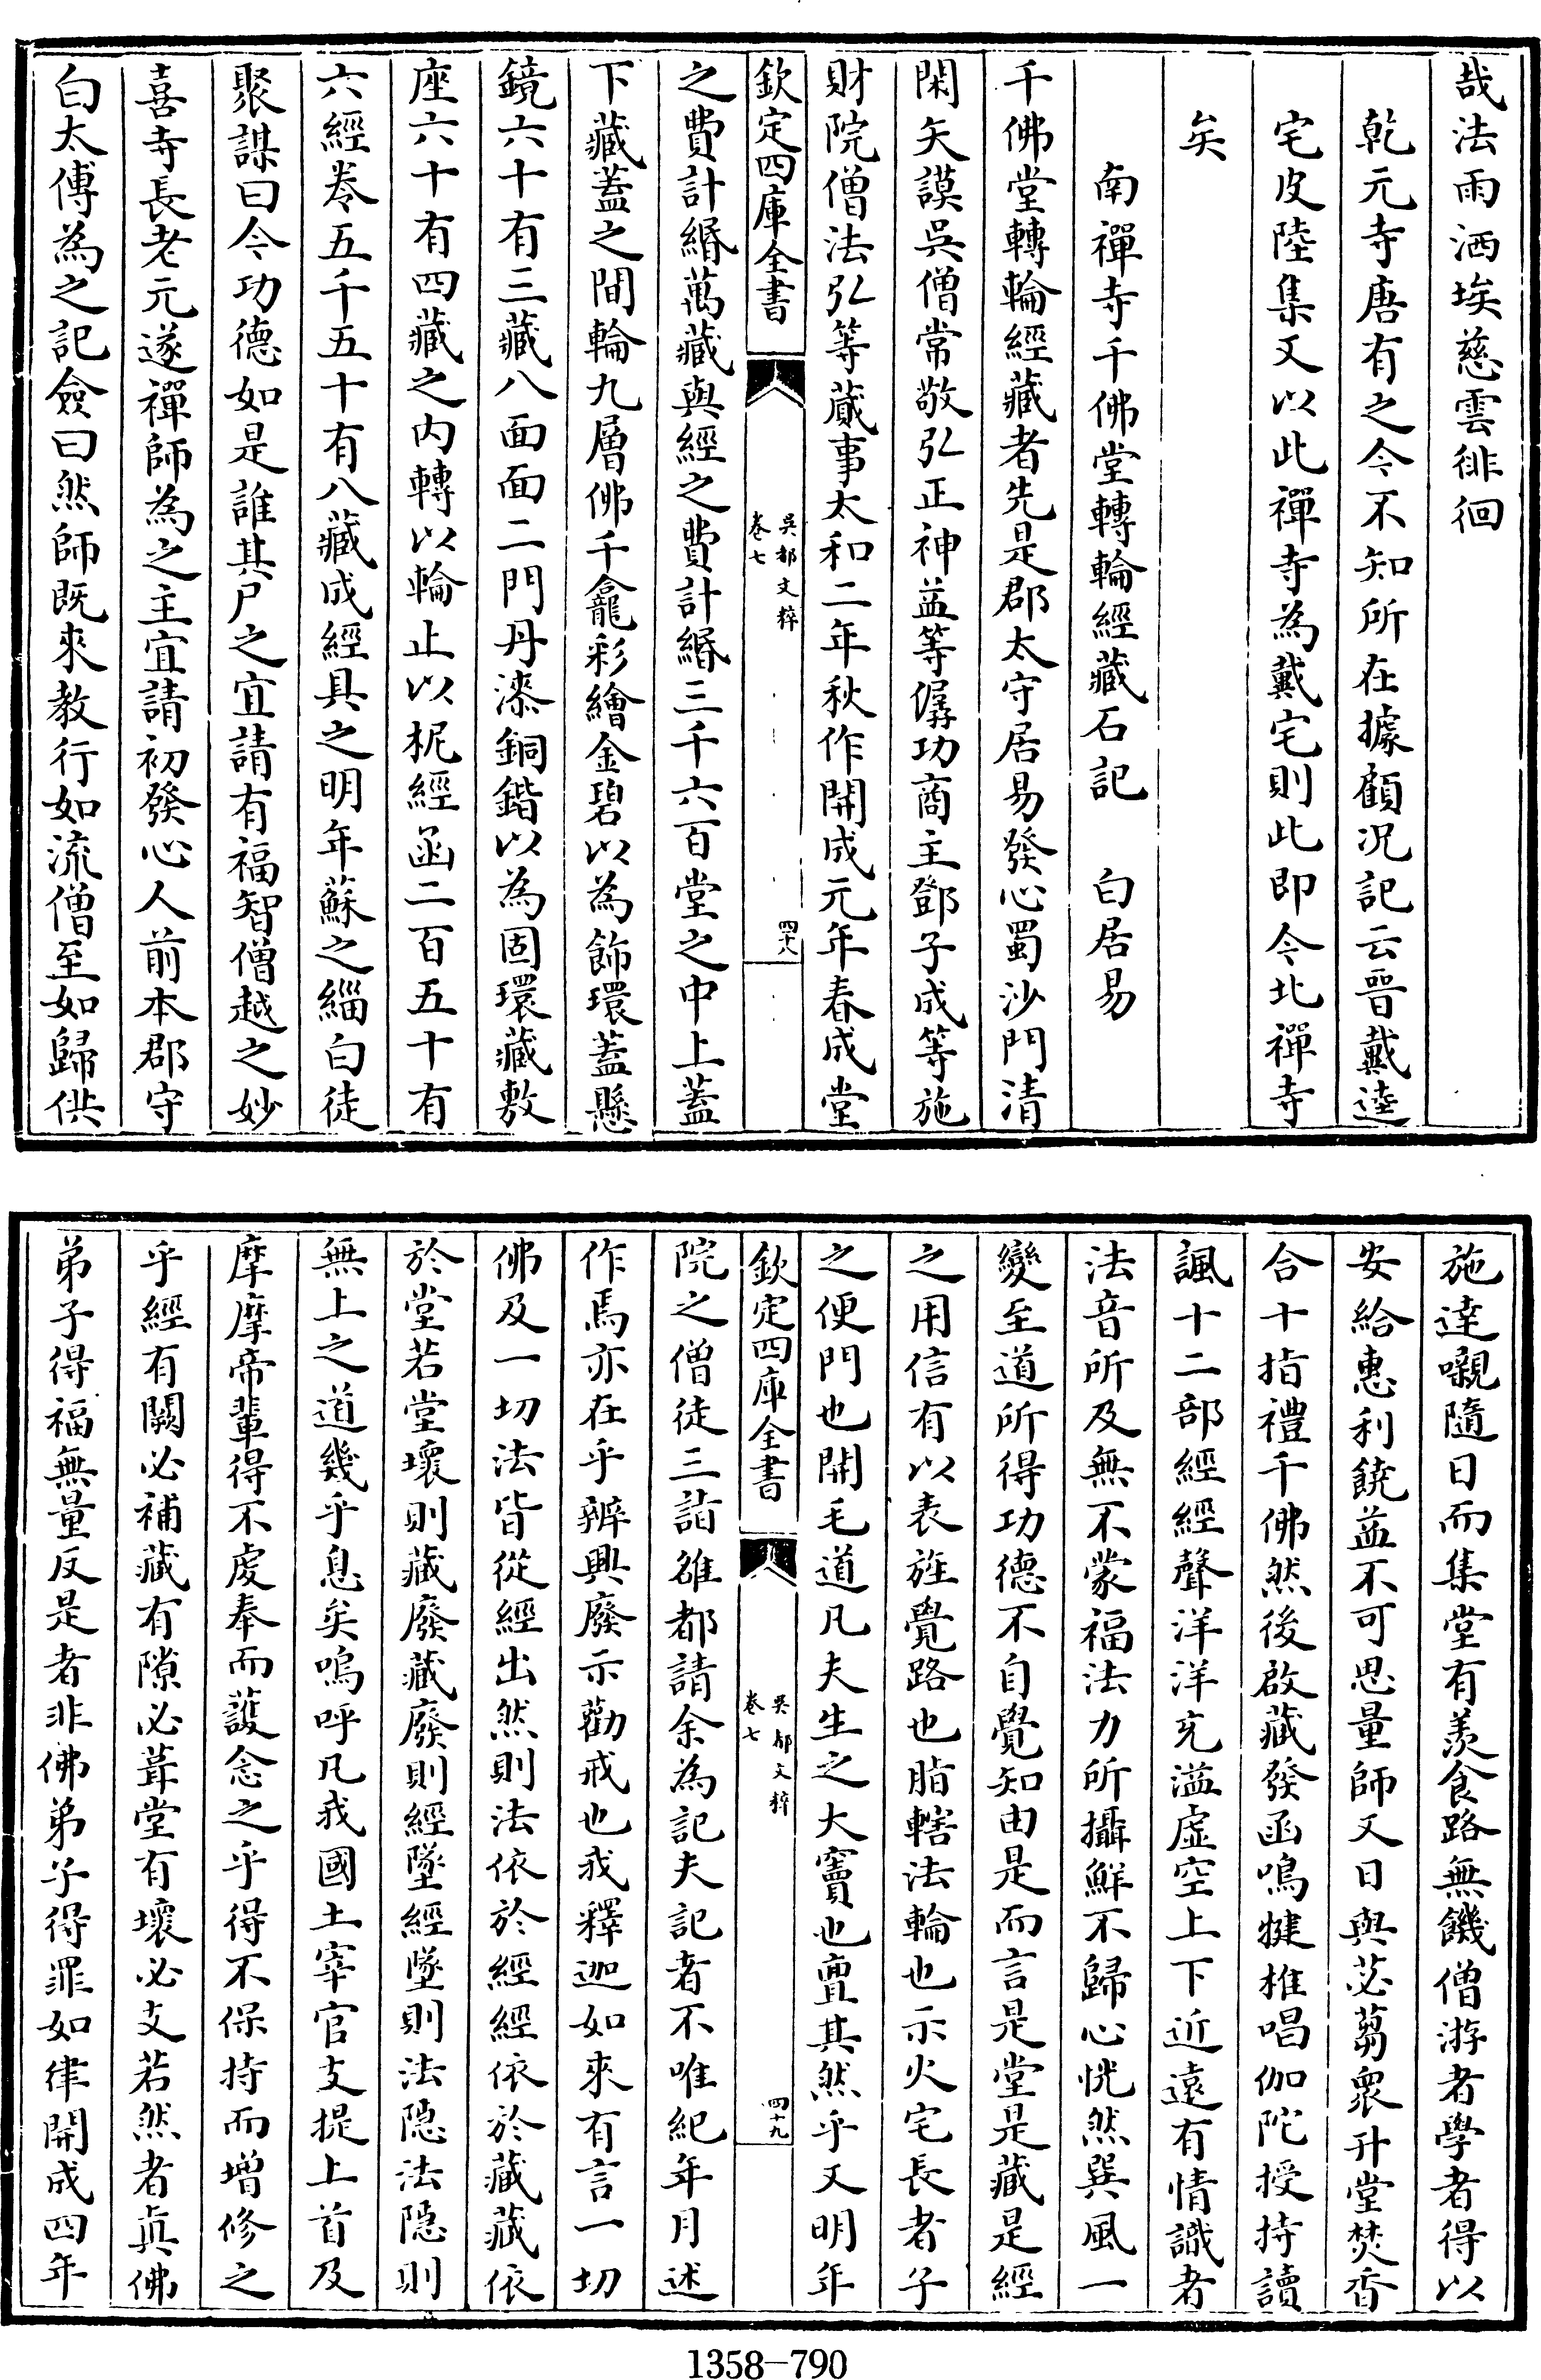 哉法雨洒埃慈雲徘徊
乾元寺唐有之今不知所在據顧况記云晉戴逵
宅皮陸集又以此禪寺為戴宅則此即今北禪寺
矣
南禪寺千佛堂轉輪經藏石記　白居易
千佛堂轉輪經藏者先是郡太守居易發心蜀沙門清
閑矢謨吳僧常敬弘正神益等僝功商主鄧子成等施
財院僧法弘等蕆事太和二年秋作開成元年春成堂
欽定四庫全書
吳都文粹
卷七
四十八
之費計緡萬藏與經之費計緡三千六百堂之中上蓋
下藏蓋之間輪九層佛千龕彩繪金碧以為飾環蓋懸
鏡六十有三藏八面面二門丹漆銅鍇以為固環藏敷
座六十有四藏之内轉以輪止以柅經函二百五十有
六經卷五千五十有八藏成經具之明年蘇之緇白徒
聚謀曰今功德如是誰其尸之宜請有福智僧越之妙
喜寺長老元遂禪師為之主宜請初發心人前本郡守
白太傅為之記僉曰然師既來教行如流僧至如歸供
施達嚫隨日而集堂有羨食路無饑僧游者學者得以
安給惠利饒益不可思量師又日與苾蒭衆升堂焚香
合十指禮千佛然後啟藏發函鳴犍椎唱伽陀授持讀
諷十二部經經聲洋洋充溢虛空上下近遠有情識者
法音所及無不蒙福法力所攝鮮不歸心恍然巽風一
變至道所得功德不自覺知由是而言是堂是藏是經
之用信有以表旌覺路也脂轄法輪也示火宅長者子
之便門也開毛道凡夫生之大竇也亶其然乎又明年
欽定四庫全書
吳都文粹
卷七
四十九
院之僧徒三詣雒都請余為記夫記者不唯紀年月述
作焉亦在乎辨興廢示勸戒也我釋迦如來有言一切
佛及一切法皆從經出然則法依於經經依於藏藏依
於堂若堂壞則藏廢藏廢則經墜經墜則法隱法隱則
無上之道幾乎息矣嗚呼凡我國土宰官支提上首及
摩摩帝輩得不虔奉而護念之乎得不保持而增修之
乎經有闕必補藏有隙必葺堂有壞必支若然者真佛
弟子得福無量反是者非佛弟子得罪如律開成四年
1358—790